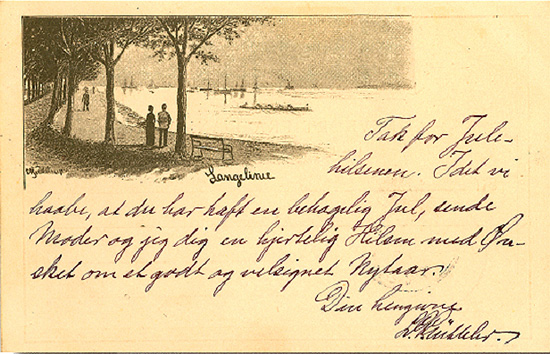 Langelinie
Tak for Jule-
hilsenen. Idet vi
haabe, at du har haft en behagelig Jul, sende
Moder og jeg dig en hjertelig Hilsen med Øn-
sket om et godt og velsignet Nytaar.
Din hengivne